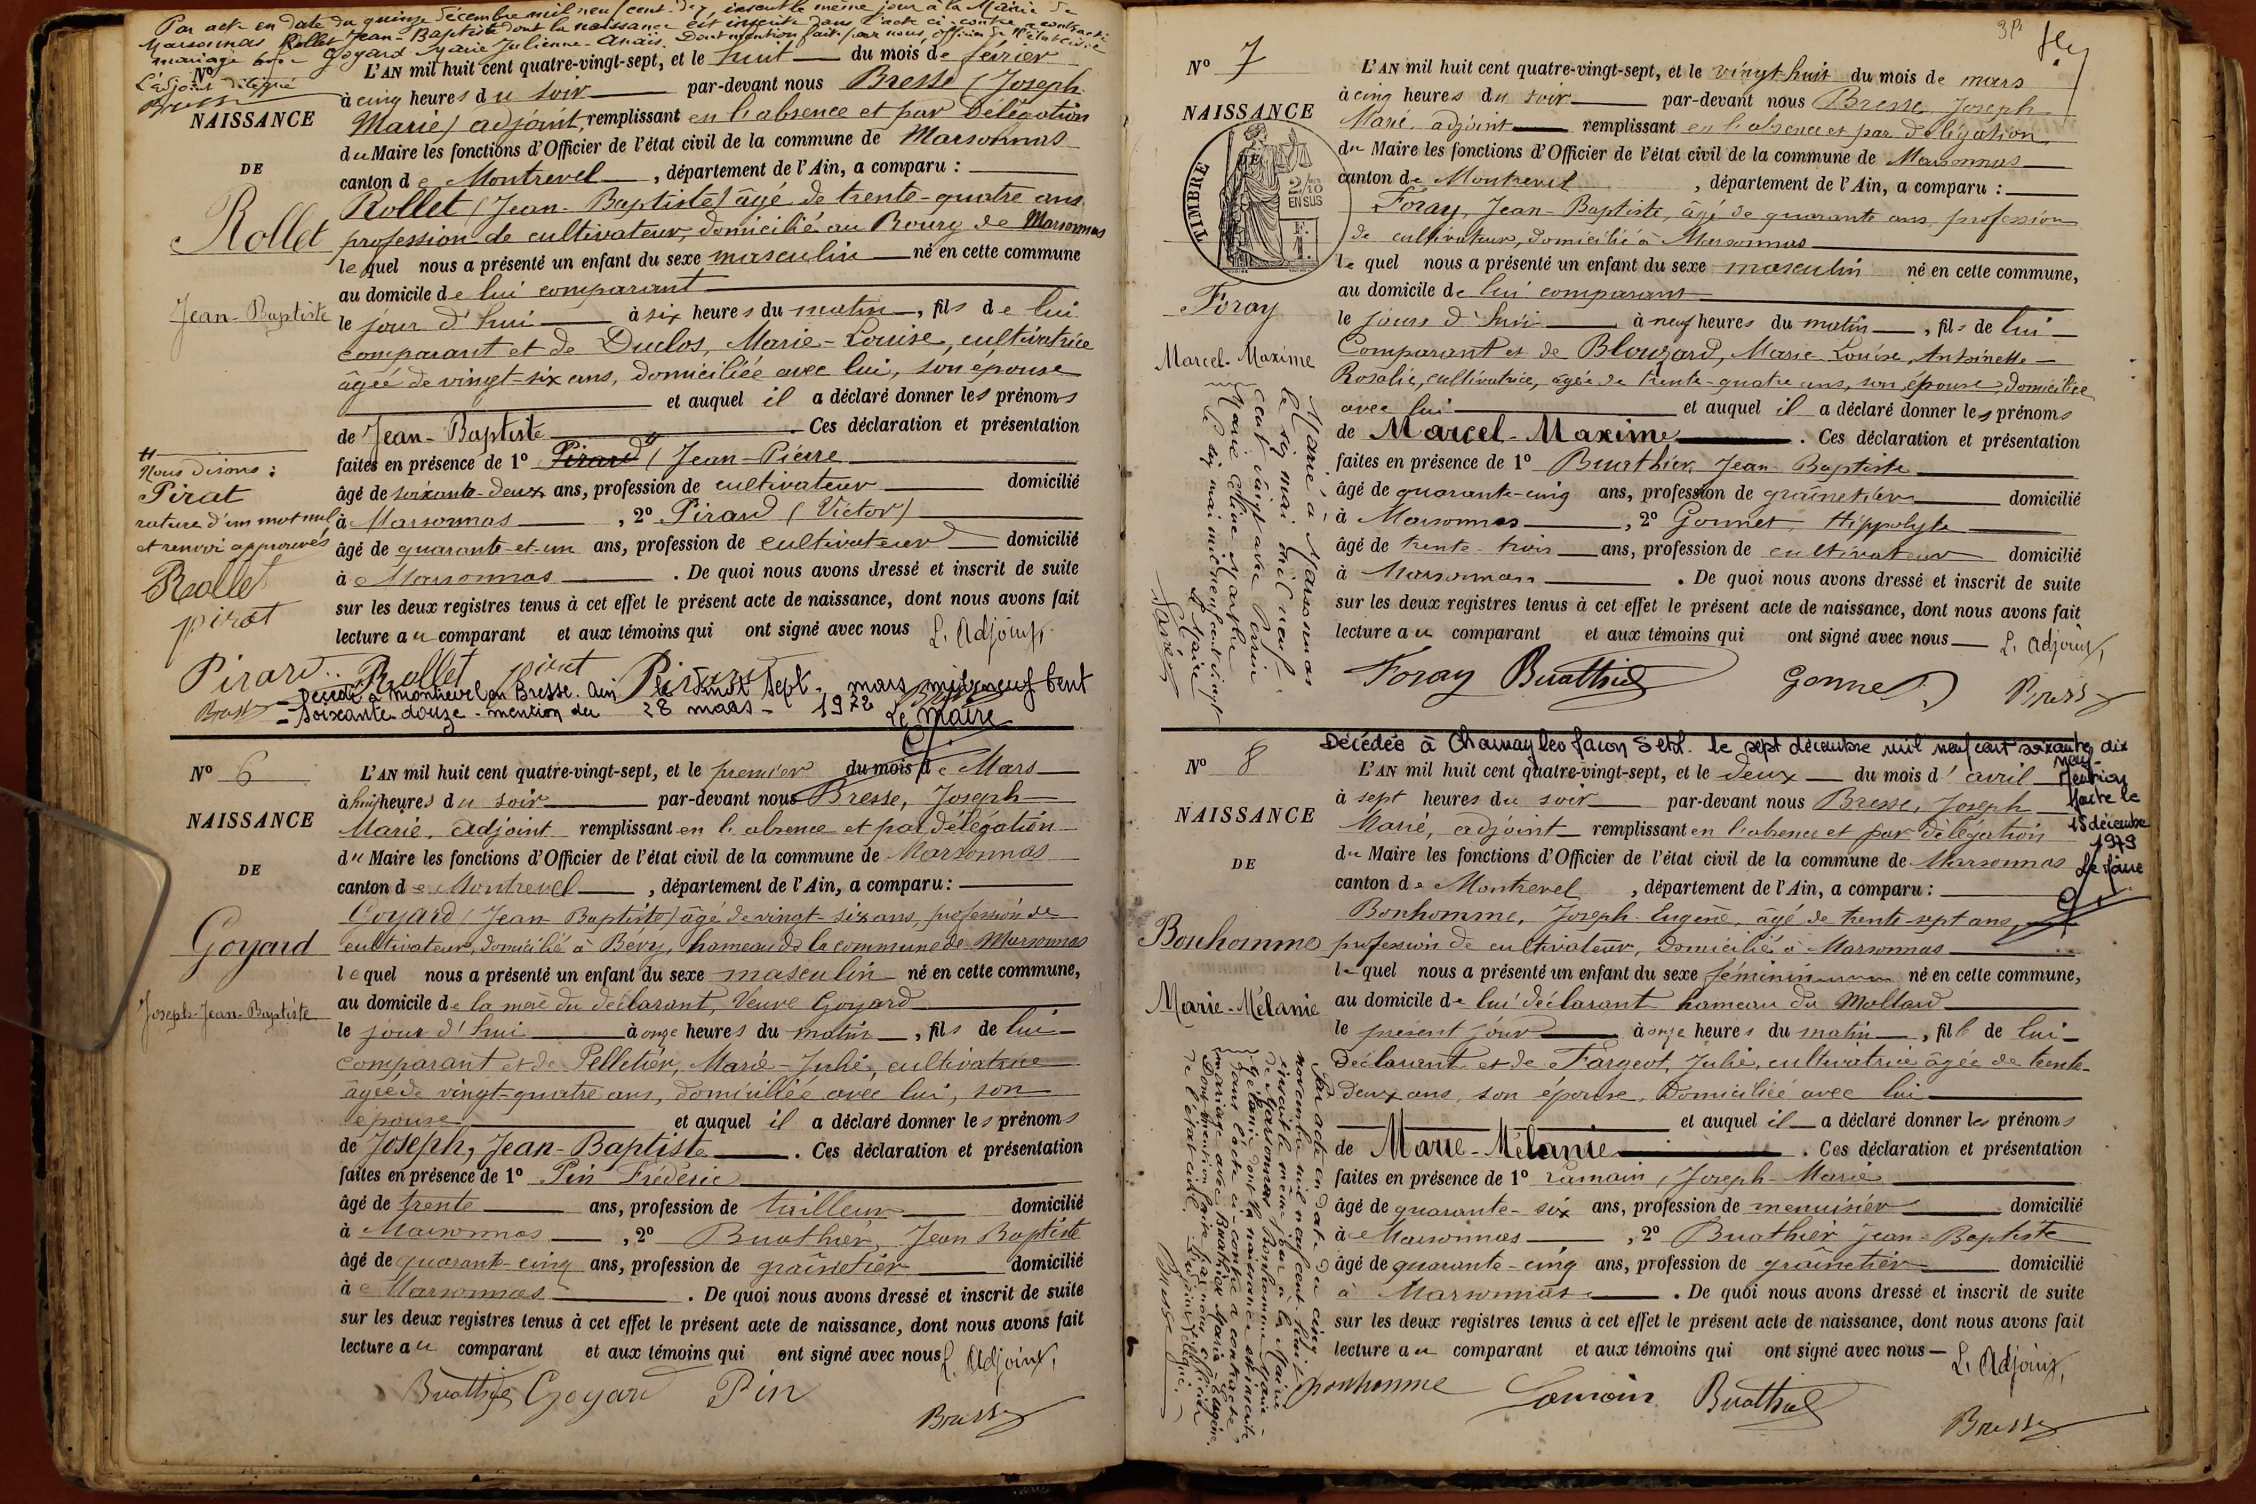 Par acte en date du quinze décembre mil neuf cent dix, inscrit le même jour à la Mairie de
Marsonnas Rollet Jean-Baptiste dont la naissance est inscrite dans l'acte ci-contre a contracté
mariage avec Goyard Marie Julienne-Anaïs. Dont mention faite par nous, officier de l'état civil
L'adjoint délégué
Bresse
N°
NAISSANCE
DE
Rollet
Jean-Baptiste
L'AN mil huit cent quatre-vingt-sept, et le huit du mois de février
à cinq heures du soir par-devant nous Bresse (Joseph
Marie) adjoint, remplissant en l'absence et par Délégation
du Maire les fonctions d'Officier de l'état civil de la commune de Marsonnas
canton de Montrevel, département de l'Ain, a comparu :
Rollet (Jean-Baptiste) âgé de trente-quatre ans
profession de cultivateur, domicilié au Bourg de Marsonnas
lequel nous a présenté un enfant du sexe masculin né en cette commune
au domicile de lui comparant
le jour d'hui à six heures du matin, fils de lui
comparant et de Duclos, Marie-Louise, cultivatrice
âgée de vingt-six ans, domiciliée avec lui, son épouse
et auquel il a déclaré donner les prénoms
de Jean-Baptiste. Ces déclaration et présentation
faites en présence de 1° Pirard (Jean-Pierre
âgé de soixante-deux ans, profession de cultivateur domicilié
à Marsonnas, 2° Pirard (Victor)
âgé de quarante-et-un ans, profession de cultivateur domicilié
à Marsonnas. De quoi nous avons dressé et inscrit de suite
sur les deux registres tenus à cet effet le présent acte de naissance, dont nous avons fait
lecture au comparant et aux témoins qui ont signé avec nous L. Adjoint,
Nous disons :
Pirat
rature d'un mot nul
et renvoi approuvés
Rollet
pirat
Pirard Rollet pirat Pirard
Bresse
Décédé à Montrevel en Bresse. Ain le vingt sept mars mil neuf cent
soixante-douze - mention du 28 mars 1972
Le Maire
N° 6
NAISSANCE
DE
Goyard
Joseph-Jean-Baptiste
L'AN mil huit cent quatre-vingt-sept, et le premier du mois de Mars
à huit heures du soir par-devant nous Bresse, Joseph
Marie, adjoint remplissant en l'absence et par délégation
du Maire les fonctions d'Officier de l'état civil de la commune de Marsonnas
canton de Montrevel, département de l'Ain, a comparu :
Goyard (Jean-Baptiste) âgé de vingt-six ans, profession de
cultivateur, domicilié à Bévy, hameau de la commune de Marsonnas
lequel nous a présenté un enfant du sexe masculin né en cette commune,
au domicile de la mère du déclarant, Veuve Goyard
le jour d'hui à onze heures du matin, fils de lui
comparant et de Pelletier, Marie-Julie, cultivatrice
âgée de vingt-quatre ans, domiciliée avec lui, son
épouse et auquel il a déclaré donner les prénoms
de Joseph, Jean-Baptiste. Ces déclaration et présentation
faites en présence de 1° Pin Frédéric
âgé de trente ans, profession de tailleur domicilié
à Marsonnas, 2° Buathier, Jean Baptiste
âgé de quarante-cinq ans, profession de grainetier domicilié
à Marsonnas. De quoi nous avons dressé et inscrit de suite
sur les deux registres tenus à cet effet le présent acte de naissance, dont nous avons fait
lecture au comparant et aux témoins qui ont signé avec nous L. Adjoint,
Buathier Goyard Pin
Bresse
N° 7
NAISSANCE
DE
TIMBRE
2/10
EN SUS
F.
1.
Foray
Marcel-Maxime
L'AN mil huit cent quatre-vingt-sept, et le vingt huit du mois de mars
à cinq heures du soir par-devant nous Bresse Joseph
Marie, adjoint remplissant en l'absence et par délégation
du Maire les fonctions d'Officier de l'état civil de la commune de Marsonnas
canton de Montrevel, département de l'Ain, a comparu :
Foray, Jean-Baptiste, âgé de quarante ans profession
de cultivateur, domicilié à Marsonnas
lequel nous a présenté un enfant du sexe masculin né en cette commune,
au domicile de lui comparant
le jours d'hui à neuf heures du matin, fils de lui
Comparant et de Blouzard, Marie Louise, Antoinette
Rosalie, cultivatrice, âgée de trente-quatre ans, son épouse, domiciliée
avec lui et auquel il a déclaré donner les prénoms
de Marcel-Maxime. Ces déclaration et présentation
faites en présence de 1° Buathier, Jean Baptiste
âgé de quarante-cinq ans, profession de grainetier domicilié
à Marsonnas, 2° Gonnet, Hippolyte
âgé de trente-trois ans, profession de cultivateur domicilié
à Marsonnas. De quoi nous avons dressé et inscrit de suite
sur les deux registres tenus à cet effet le présent acte de naissance, dont nous avons fait
lecture au comparant et aux témoins qui ont signé avec nous L. Adjoint,
Marié à Marsonnas
le dix mai mil neuf
cent vingt avec Perrin
Marie Céline Marthe
le dix mai mil neuf cent vingt
Le Maire
Foray Buathier Gonnet Bresse
N° 8
NAISSANCE
DE
Bonhomme
Marie-Mélanie
Décédée à Charnay les Macon S et L. le sept décembre mil neuf cent soixante dix
neuf
Mention
faite le
15 décembre
1979
Le Maire
L'AN mil huit cent quatre-vingt-sept, et le deux du mois d'avril
à sept heures du soir par-devant nous Bresse, Joseph
Marie, adjoint remplissant en l'absence et par délégation
du Maire les fonctions d'Officier de l'état civil de la commune de Marsonnas
canton de Montrevel, département de l'Ain, a comparu :
Bonhomme, Joseph Eugène, âgé de trente-sept ans,
profession de cultivateur, domicilié à Marsonnas
lequel nous a présenté un enfant du sexe féminin né en cette commune,
au domicile de lui déclarant hameau du Mollard
le présent jour à onze heures du matin, fille de lui
déclarant et de Fargeot, Julie, cultivatrice âgée de trente-
deux ans, son épouse, Domiciliée avec lui
et auquel il a déclaré donner les prénoms
de Marie-Mélanie. Ces déclaration et présentation
faites en présence de 1° Lamain, Joseph-Marie
âgé de quarante-six ans, profession de menuisier domicilié
à Marsonnas, 2° Buathier Jean-Baptiste
âgé de quarante-cinq ans, profession de grainetier domicilié
à Marsonnas. De quoi nous avons dressé et inscrit de suite
sur les deux registres tenus à cet effet le présent acte de naissance, dont nous avons fait
lecture au comparant et aux témoins qui ont signé avec nous L. Adjoint,
Par acte en date du cinq
novembre mil neuf cent huit
inscrit le même jour à la Mairie
de Marsonnas Bonhomme Marie
Mélanie dont la naissance est inscrite
dans l'acte ci-contre a contracté
mariage avec Buathier Marie Eugène.
Dont mention faite par nous, officier
de l'état civil. L'adjoint délégué,
Bresse
Bonhomme Lamain Buathier
Bresse